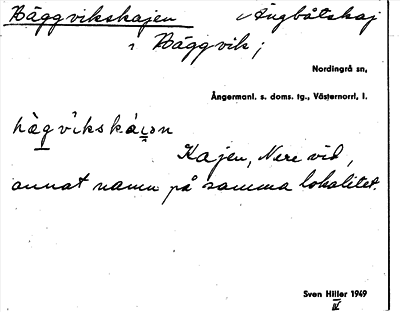 Bäggvikskajen Ångbåtskaj
i Bäggvik;
Nordingrå sn,
Ångermanl. s. doms. tg., Västernorrl. l.
Kajen, Nere vid,
annat namn på samma lokalitet.
Sven Hiller 1949
IV